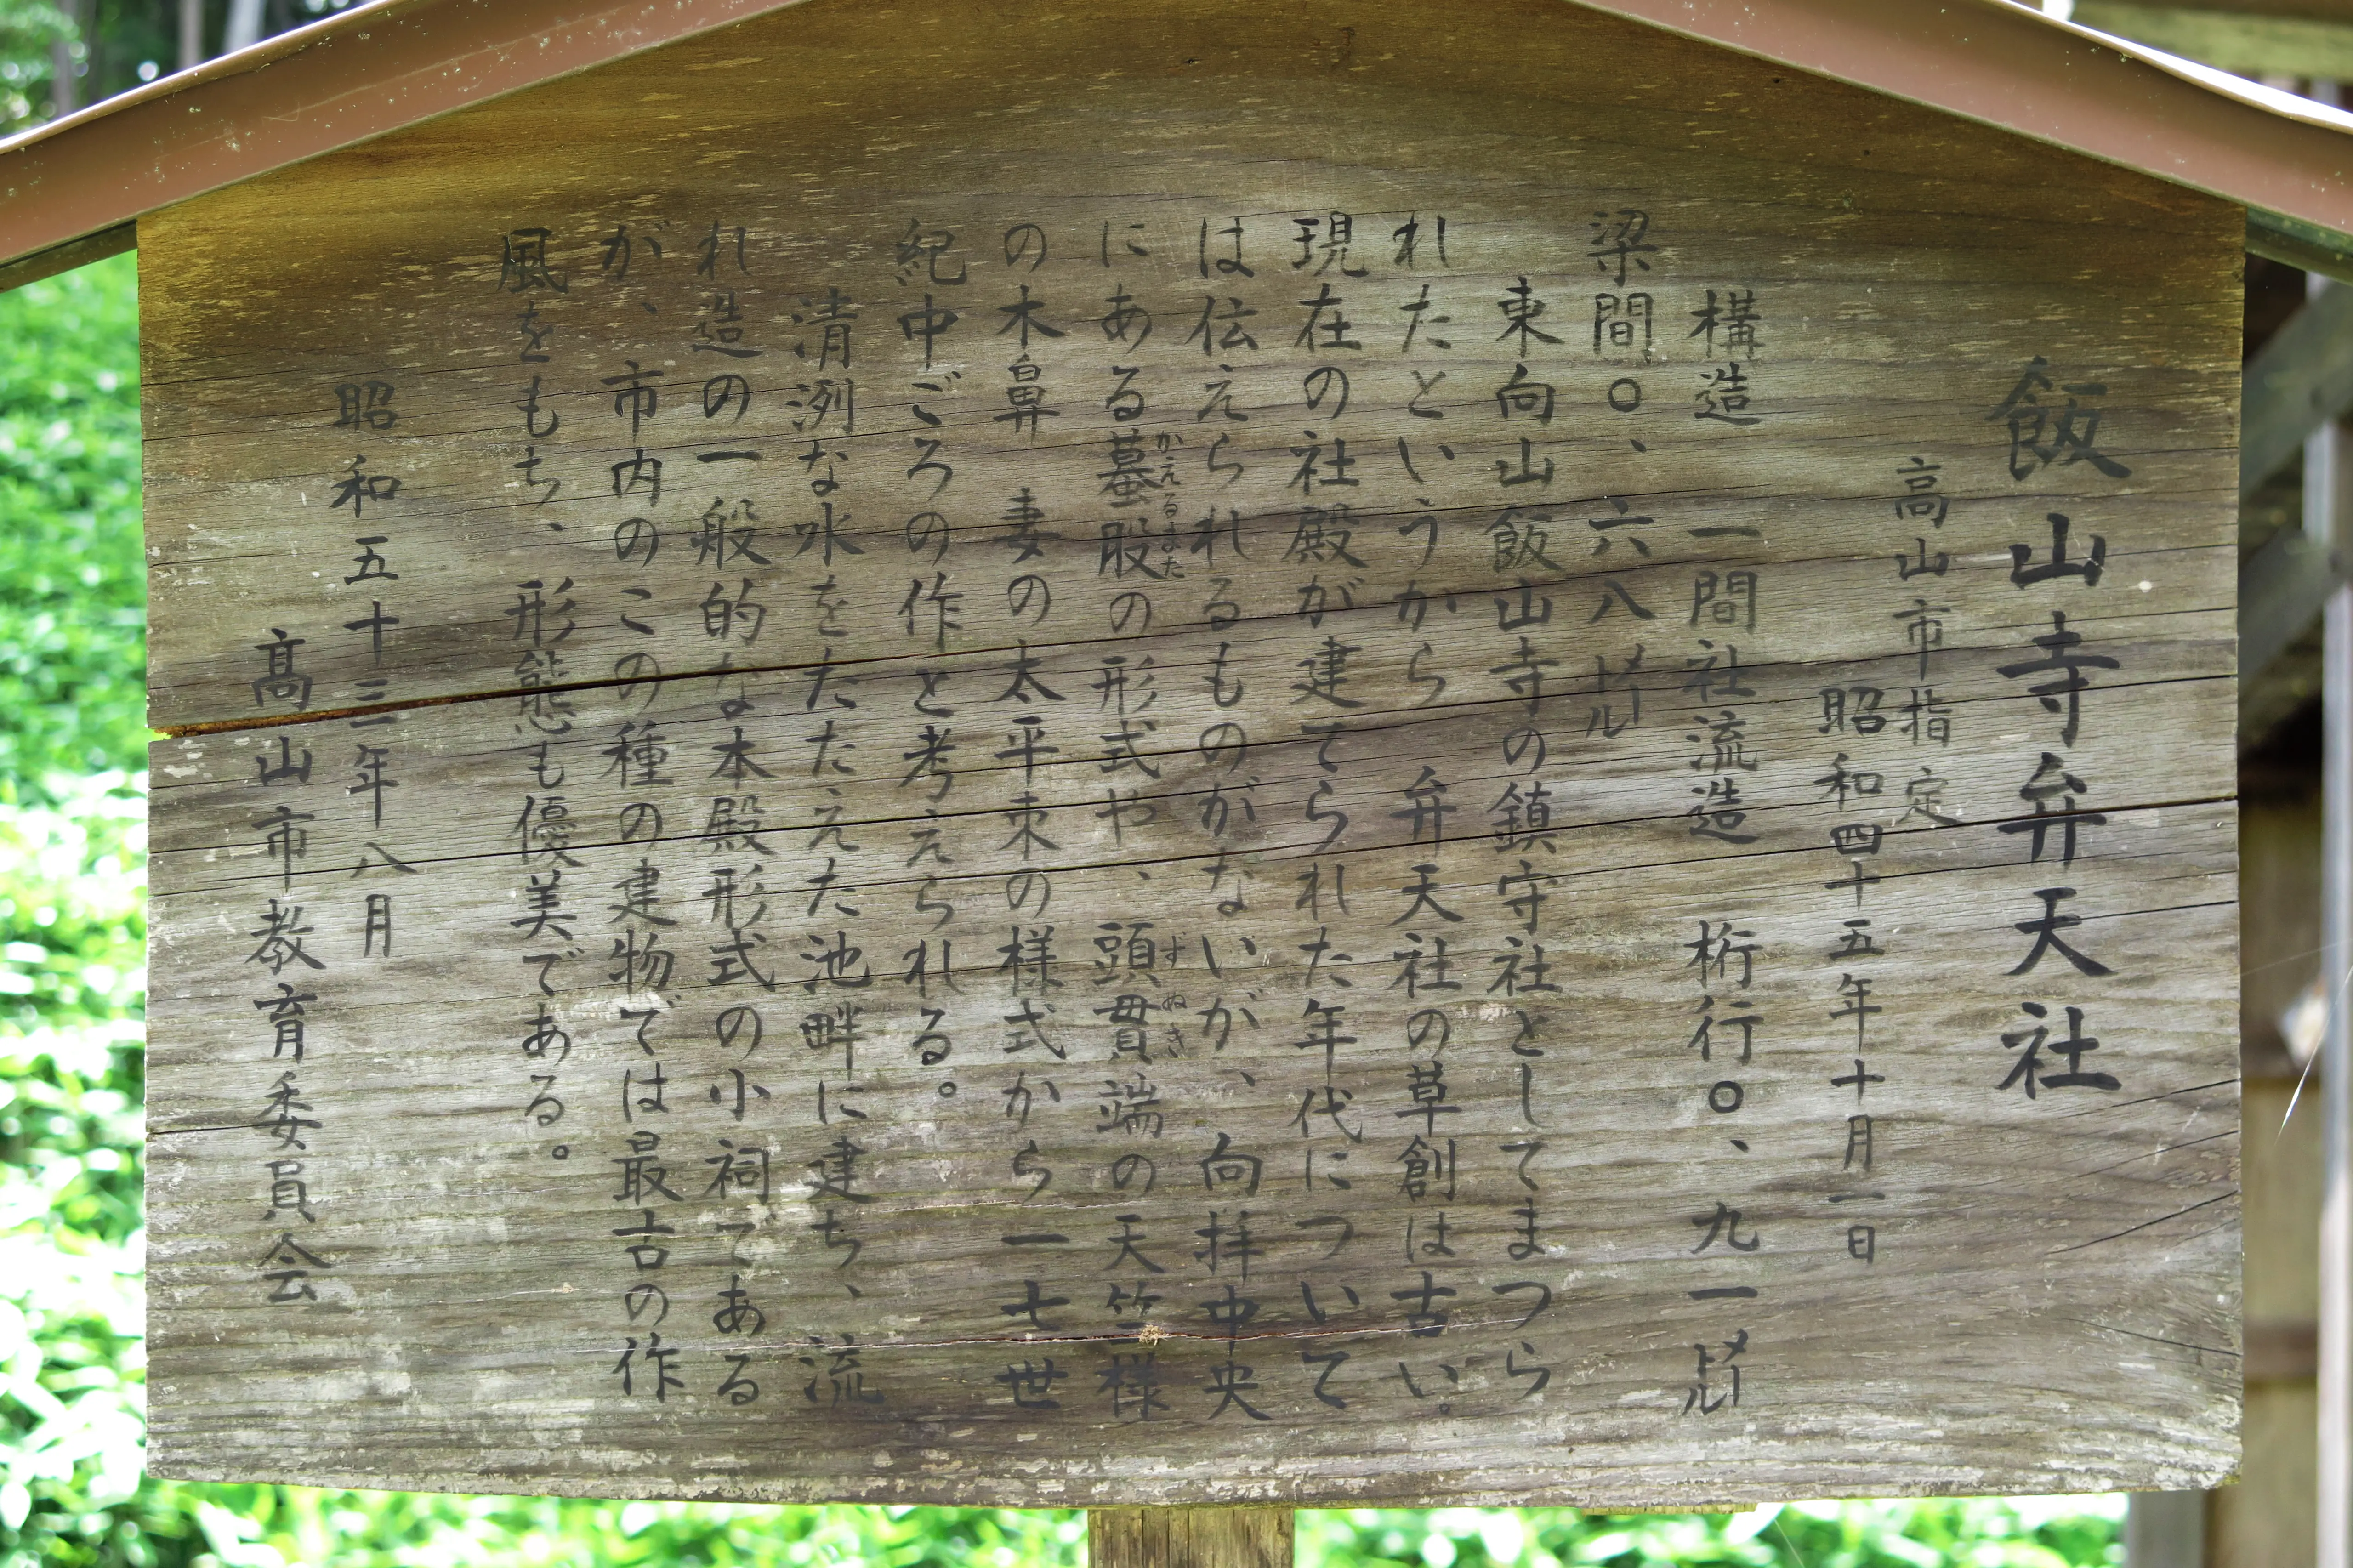 飯山寺弁天社
高山市指定
昭和四十五年十月一日
構造 一間社流造 桁行〇、九一メートル
梁間〇、六八メートル
東向山飯山寺の鎮守社としてまつら
れたというから 弁天社の草創は古い。
現在の社殿が建てられた年代について
は伝えられるものがないが、向拝中央
にある蟇股の形式や、頭貫端の天竺様
かえるまた
ずぬき
の木鼻 妻の太平束の様式から一七世
紀中ごろの作と考えられる。
清洌な水をたたえた池畔に建ち、流
れ造の一般的な本殿形式の小祠である
が、市内のこの種の建物では最古の作
風をもち、形態も優美である。
昭和五十三年八月
髙山市教育委員会